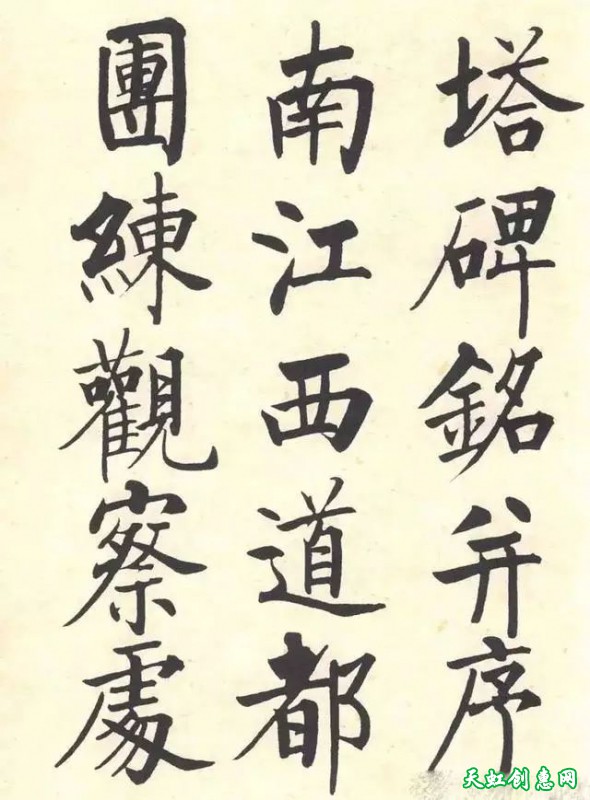 塔碑銘并序
南江西道都
團練觀察處
天虹创惠网